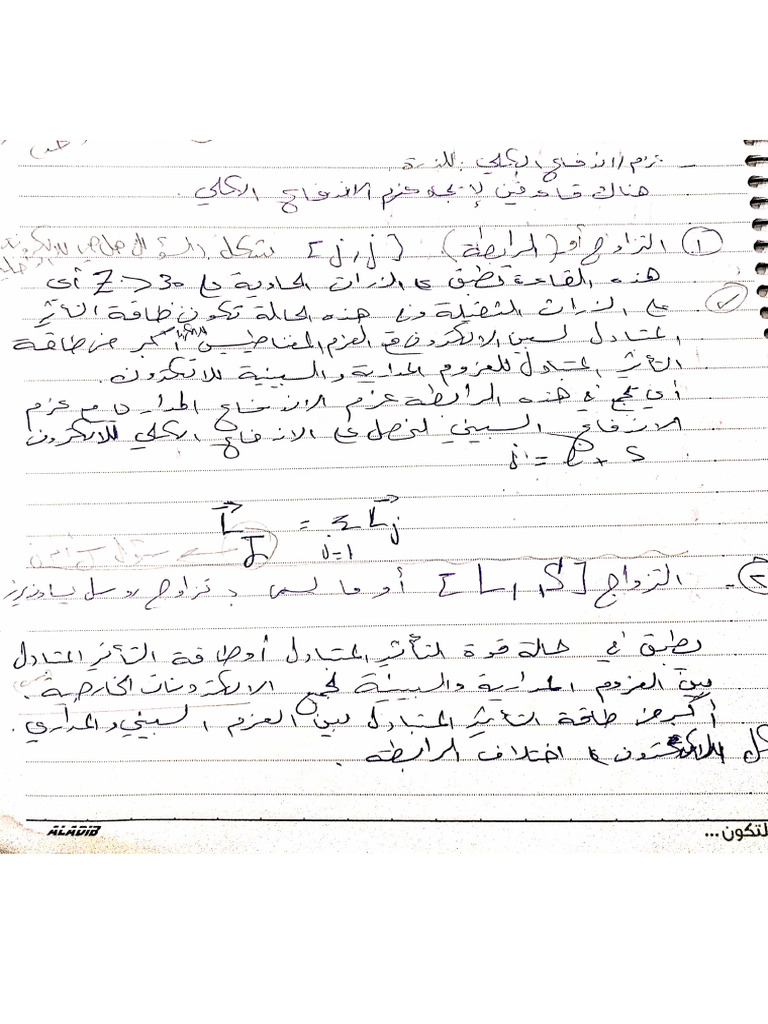 - عزم الاندفاع الكلي للذرة
هناك قاعدتين لإيجاد عزم الاندفاع الكلي .
① التزاوج أو (الرابطة) [j , j] بشكل السؤال
هذه القاعدة تطبق على الذرات الحاوية على Z > 30 أي
على الذرات الثقيلة وفي هذه الحالة تكون طاقة التأثير
المتبادل لسبين الالكترون في العزم المغناطيسي أكبر من طاقة
التأثير المتبادل للعزوم المدارية والسبينية للالكترون .
أي نجمع في هذه الرابطة عزم الاندفاع المداري مع عزم
الاندفاع السبيني لنحصل على الاندفاع الكلي للالكترون
j = l + s
L J = Σ L j
j=1
② - التزواج [L , S] أو ما يسمى بـ تزاوج رسل ساوندرز
يطبق في حالة قوة التأثير المتبادل أو طاقة التأثير المتبادل
بين العزوم المدارية والسبينية لجميع الالكترونات الخارجية .
أكبر من طاقة التأثير المتبادل بين العزم السبيني والمداري .
كل الكترون على اختلاف الرابطة .
ALADIB
لتكون...